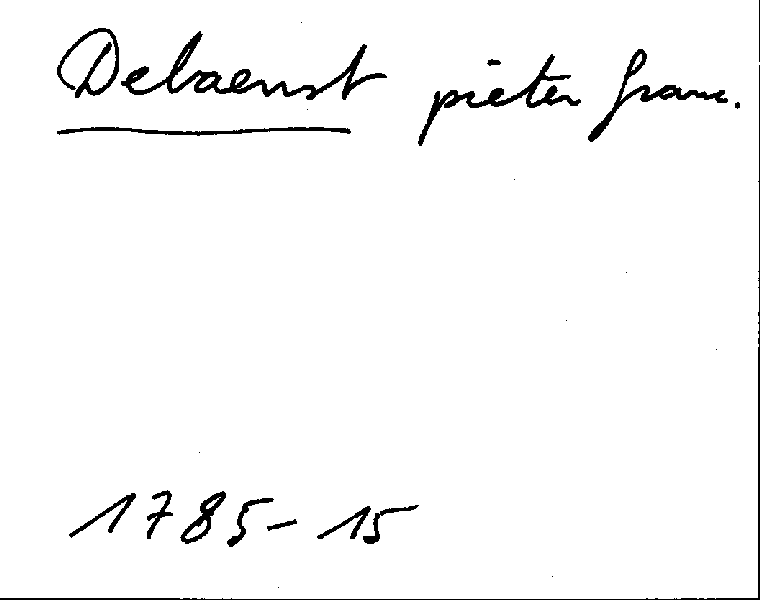 Debaenst pieter franc.
1785-15